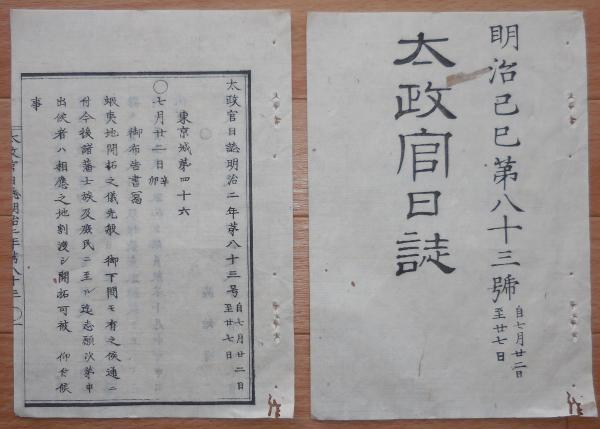 明治己巳第八十三號
自七月廿二日
至廿七日
太政官日誌
太政官日誌明治二年第八十三号
自七月廿二日
至廿七日
東京城第四十六
〇七月廿二日辛卯
御布告書寫
蝦夷地開拓之儀先般 御下問モ有之候通ニ
付今後諸藩士族及庶民ニ至ル迄志願次第申
出候者ハ相應之地割渡シ開拓可被 仰付候
事
太政官日誌明治二年第八十三